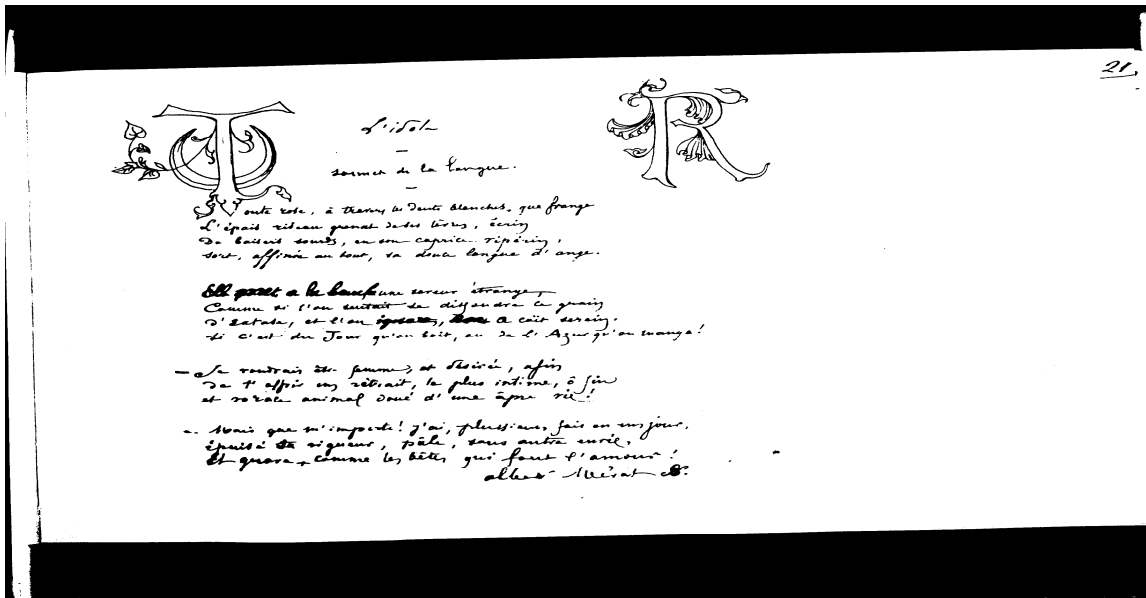 21.
T R
L'idole
—
sonnet de la langue.
—
Toute rose, à travers les dents blanches, que frange
L'épais rideau grenat de ses lèvres, écrin
De baisers sourds, en son caprice
sort, affinée au bout, sa douce langue d'ange.
Elle met a la bouche une saveur étrange,
Comme si l'on sentait se dissoudre ce grain
D'extase, et l'on ignore, à cœit serein,
si c'est du Jour qu'on boit, ou de l'Azur qu'on mange!
— Je voudrais être femme, et désirée, afin
De t' en retrait, le plus intime, ô fin
et rorace animal doué d'une âpre vie!
— Mais que m'importe! j'ai, plusieurs fois en un jour,
épuisé ta vigueur, pâle, sans autre envie,
Et comme les bêtes qui font l'amour!
albert Mérat